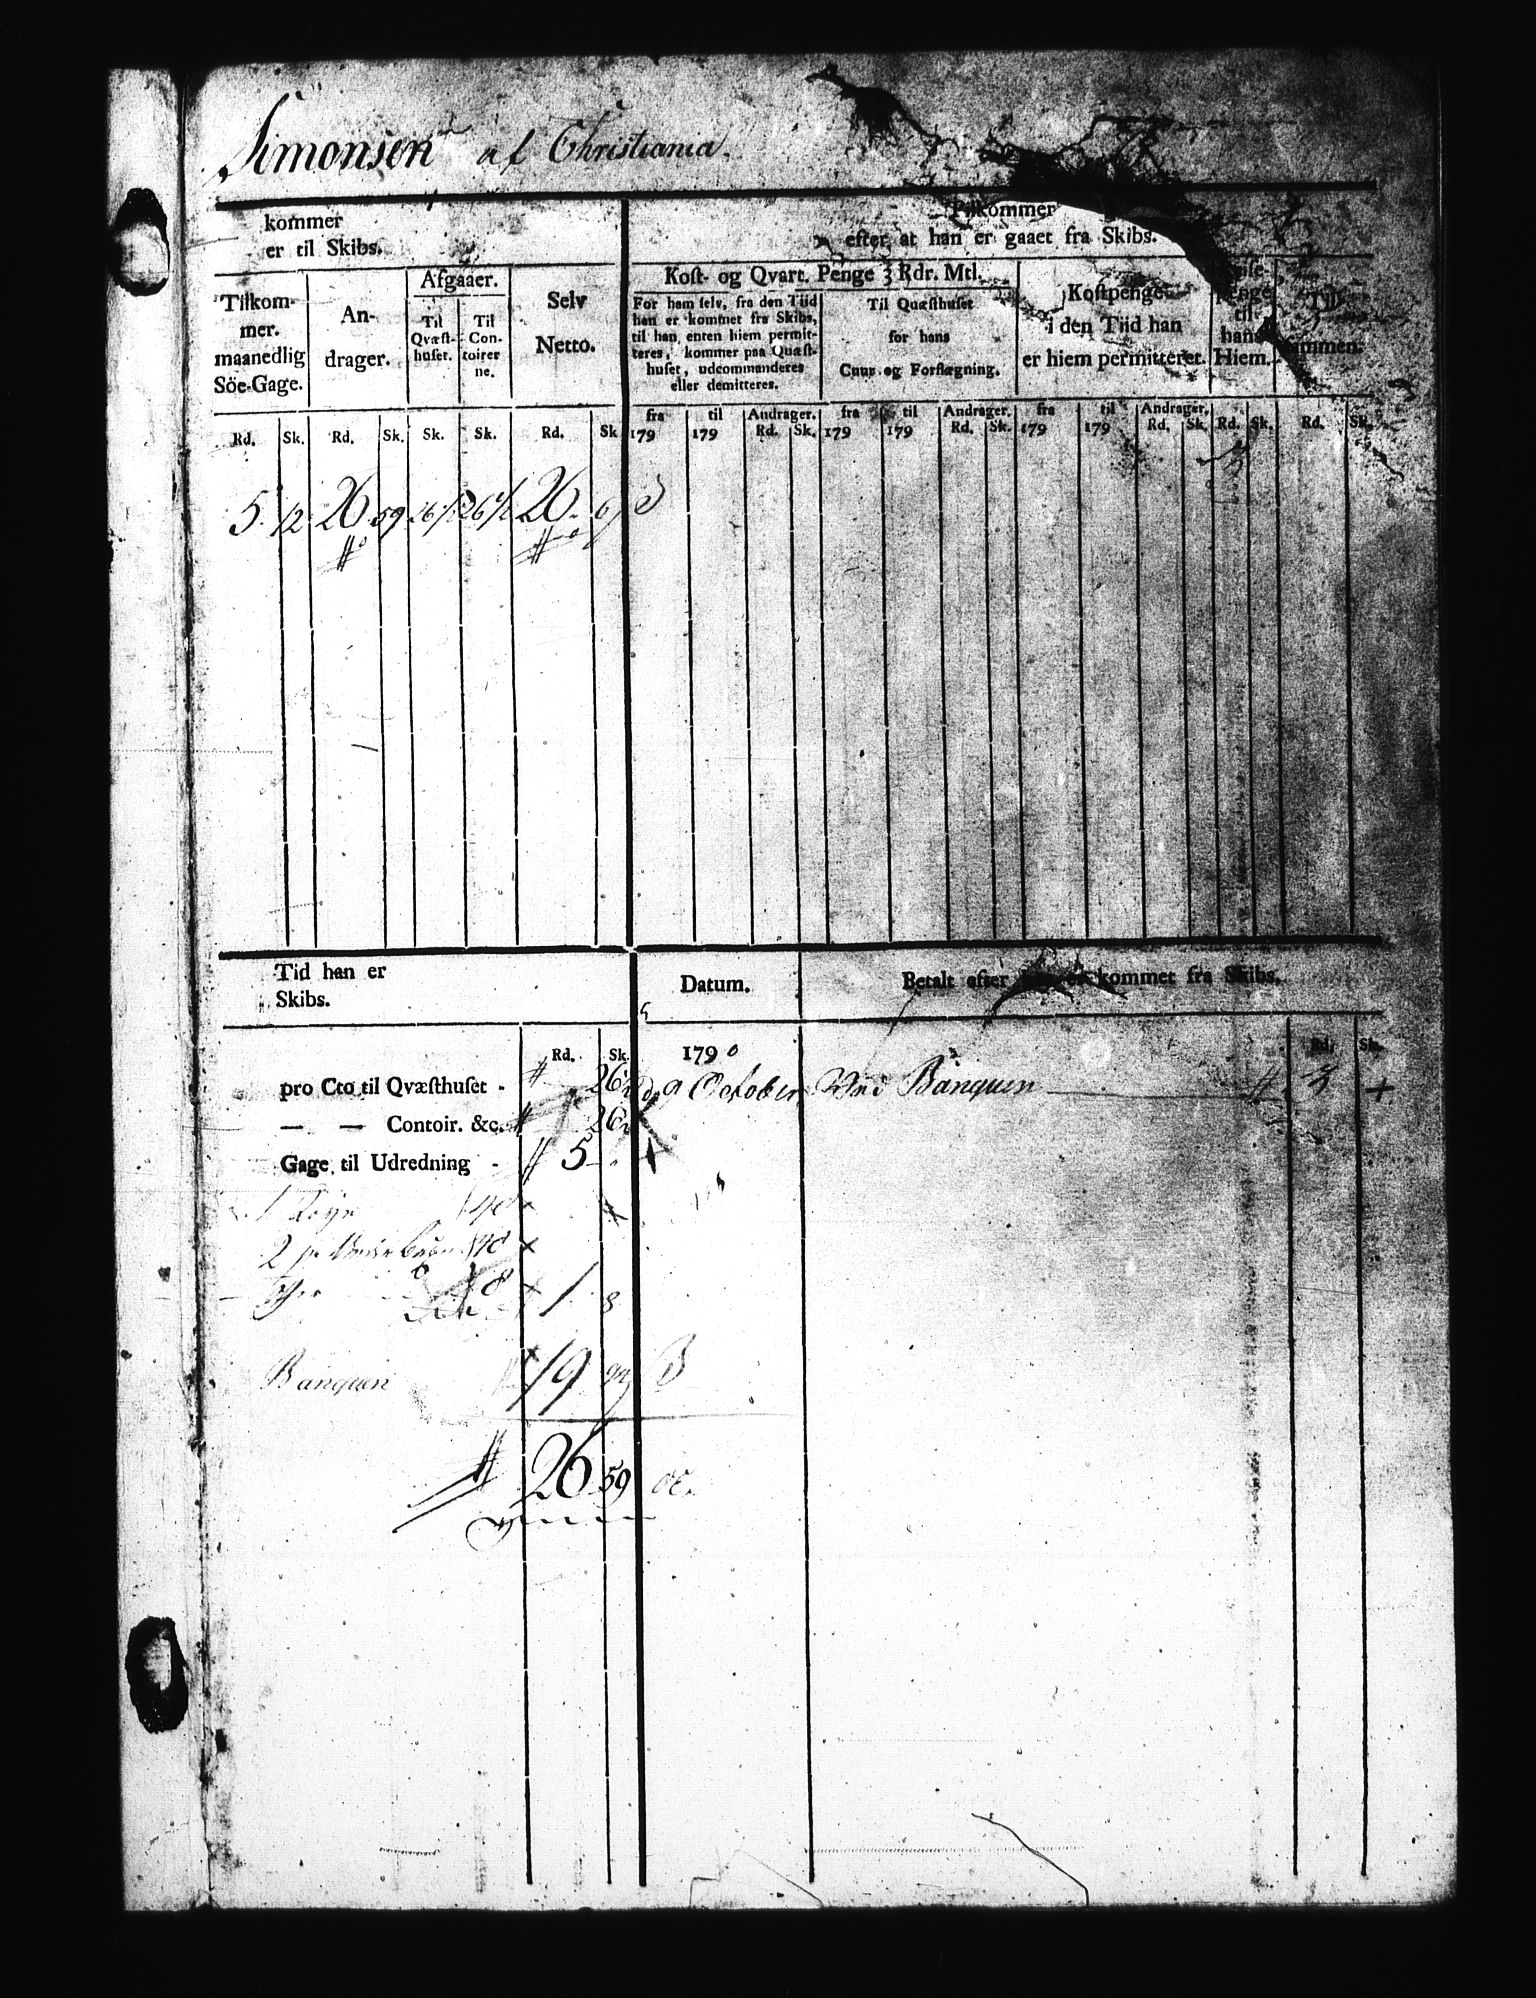 Simonsen af Christiania.
kommer
er til Skibs.
Tilkommer
efter at han er gaaet fra Skibs.
Tilkom-
mer.
maanedlig
Söe-Gage.
An-
drager.
Afgaaer.
Til
Qvæst-
huset.
Til
Con-
toirer
ne.
Selv
Netto.
Kost- og Qvart. Penge 3 Rdr. Mtl.
For ham selv, fra den Tiid
han er kommet fra Skibs,
til han enten hiem permit-
teres, kommer paa Quæst-
huset, udcommanderes
eller demitteres.
Til Quæsthuset
for hans
Cuur og Forflægning.
Kostpenge
i den Tiid han
er hiem permitteret.
penge
til
hans
Hiem.
Til
Rd. Sk. Rd. Sk. Sk. Sk. Rd. Sk.
fra 179 til 179 Andrager. Rd. Sk. fra 179 til 179 Andrager. Rd. Sk. fra 179 til 179 Andrager. Rd. Sk. Rd. Sk. Rd. Sk.
5 12 26 59 26½ 26½ 26 6
3
Tid han er
Skibs.
Datum.
Betalt efter kommet fra Skibs.
Rd. Sk. 1790 Rd. Sk.
pro Cto til Qvæsthuset - 26½
9 October Ved Banquen 3
— — Contoir. &c. 26½
Gage til Udredning - 5
1 Troye
2 pr
1 8
Banquen 19
26 59